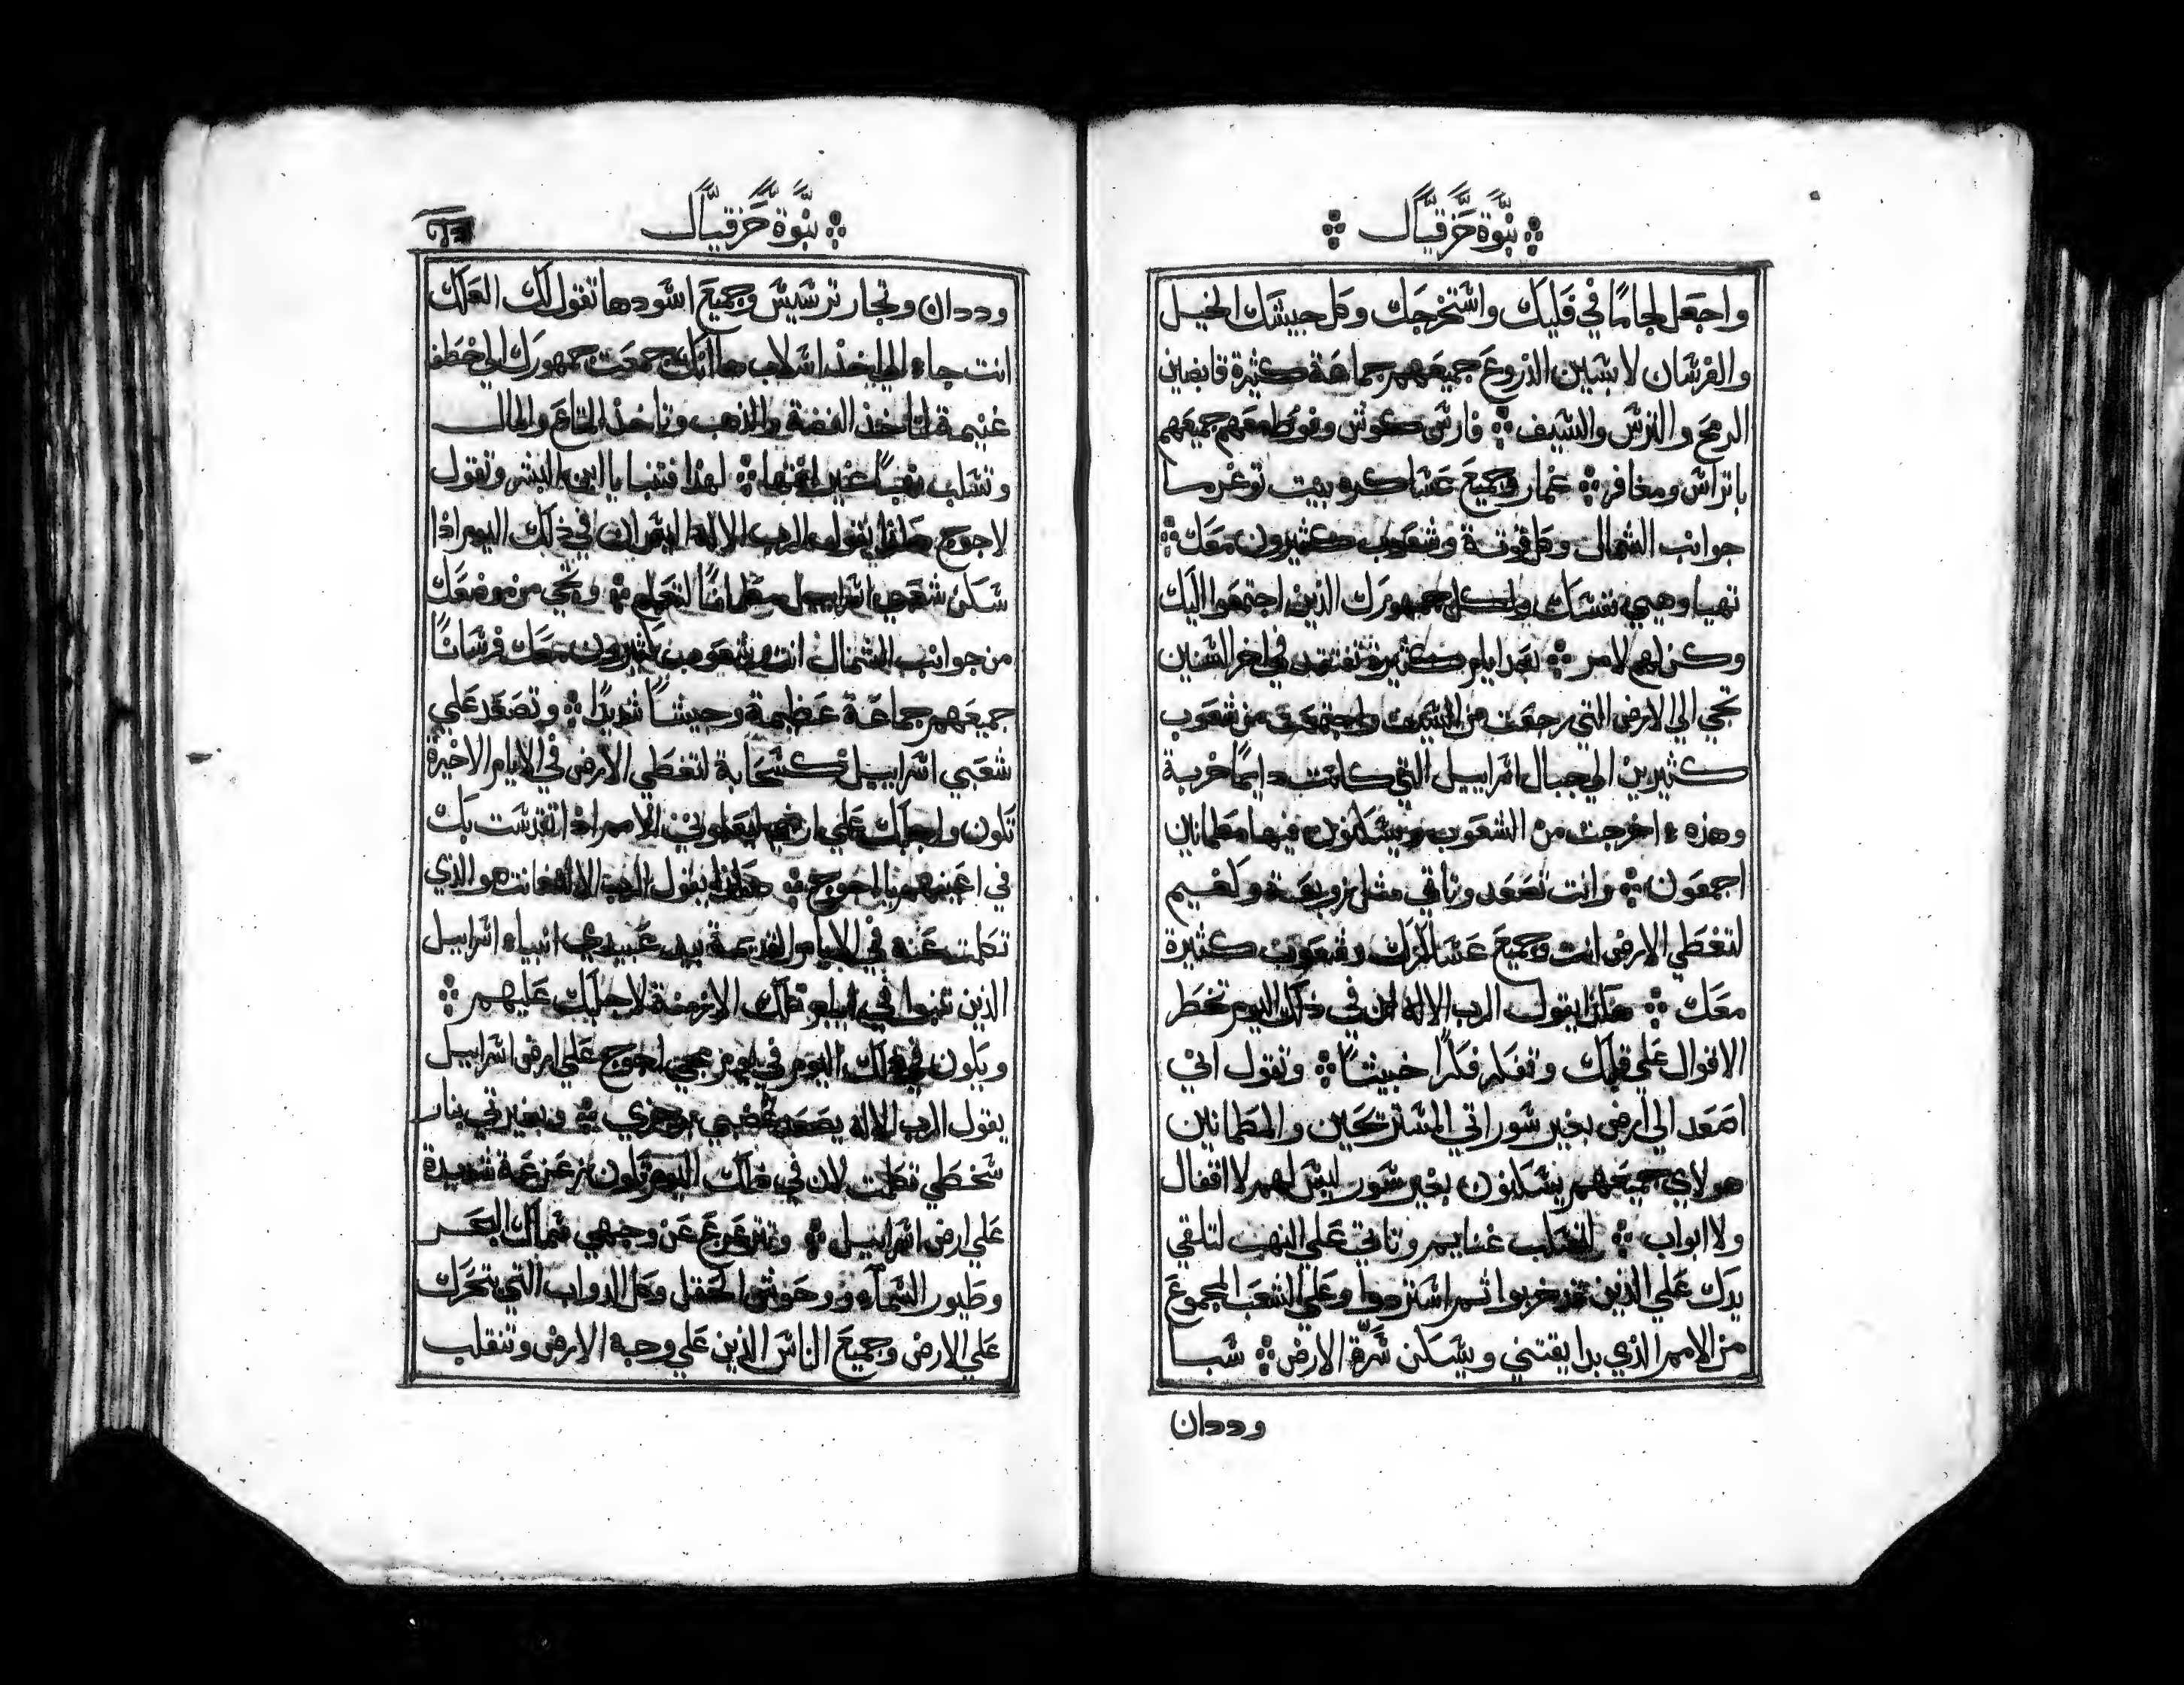 نبوة حزقيال
واجعل لجامًا في فكيك واستخرجك وكل جيشك الخيل
والفرسان لابسين الدروع جميعهم جماعة كثيرة قابضين
الرمح والترس والسيف فارس كوش وفوط معهم جميعهم
باتراس ومغافر عمار وجميع عساكره بيت توغرما
جوانب الشمال وكل قوته وشعوب كثيرون معك
تهيا وهيي نفسك وكل جمهورك الذين اجتمعوا اليك
وكن لهم لامر بعد ايام كثيرة تفتقد في اخر السنين
تجي الي الارض التي رجعت من السيف واجتمعت من شعوب
كثيرين الي جبال اسراييل التي كانت دايمًا خربة
وهذه اخرجت من الشعوب ويسكنون فيها مطمانين
اجمعون وانت تصعد وتاتي مثل زوبعة وكغيم
لتغطي الارض انت وجميع عساكرك وشعوب كثيرة
معك هكذا يقول الرب الاله ان في ذلك اليوم تخطر
الاقوال علي قلبك وتفكر فكرًا خبيثًا وتقول اني
اصعد الي ارض بغير سور اتي المستريحين والمطمانين
هولاي جميعهم يسكنون بغير سور ليس لهم لا اقفال
ولا ابواب لتسلب غنايم وتاتي علي النهب لتلقي
يدك علي الذين قد خربوا ثم استردوا وعلي الشعب المجموع
من الامم الذي بدا يقتني ويسكن سرة الارض شبا
وددان
نبوة حزقيال
وددان وتجار ترسيس وجميع اسودها تقول لك العلك
انت جاء الي اخذ اسلاب ها انك جمعت جمهورك الي خطف
غنيمة لتاخذ الفضة والذهب وتاخذ المتاع والمال
وتسلب نهبًا غير لهذا فتنبا يا ابن البشر وتقول
لاجوج هكذا يقول الرب الاله اليس ان في ذلك اليوم اذا
سكن شعبي اسراييل مطمانًا لتعلم وتجي من موضعك
من جوانب الشمال انت وشعوب كثيرون معك فرسانًا
جميعهم جماعة عظيمة وجيشًا شديدًا وتصعد علي
شعبي اسراييل كسحابة لتغطي الارض في الايام الاخيرة
تكون واجلبك علي ارضي ليعلموني الامم اذا تقدست بك
في اعينهم يا اجوج هكذا يقول الرب الاله فانت هو الذي
تكلمت عنه في الايام القديمة بيد عبيدي انبياء اسراييل
الذين تنبوا في ايام تلك الازمنة لاجلبك عليهم
ويكون في ذلك اليوم في يوم مجي اجوج علي ارض اسراييل
يقول الرب الاله يصعد غضبي برجزي وبغيرتي بنار
سخطي تكلمت لان في ذلك اليوم تكون زعزعة شديدة
علي ارض اسراييل وتتزعزع عن وجهي سماك البحر
وطيور السماء ووحوش الحقل وكل الدواب التي تتحرك
علي الارض وجميع الناس الذين علي وجه الارض وتنقلب